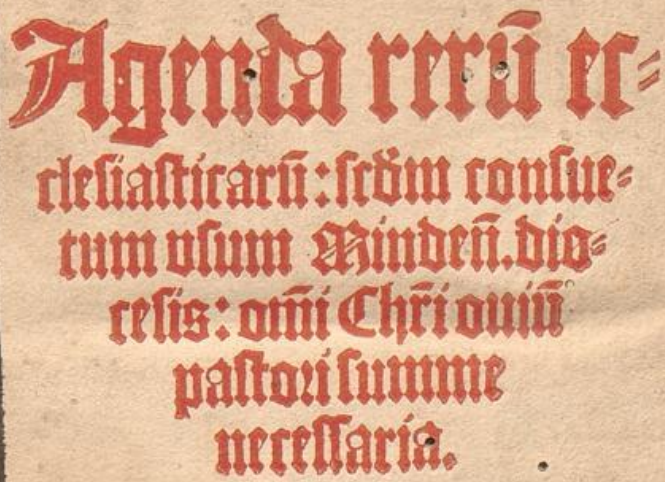 Agenda rerū ec⸗
cleſiaſticarū: ſcd̄m conſue⸗
tum vſum Mindeñ. dio⸗
ceſis: om̄i Chr̄i ouiū
paſtori ſumme
neceſſaria.